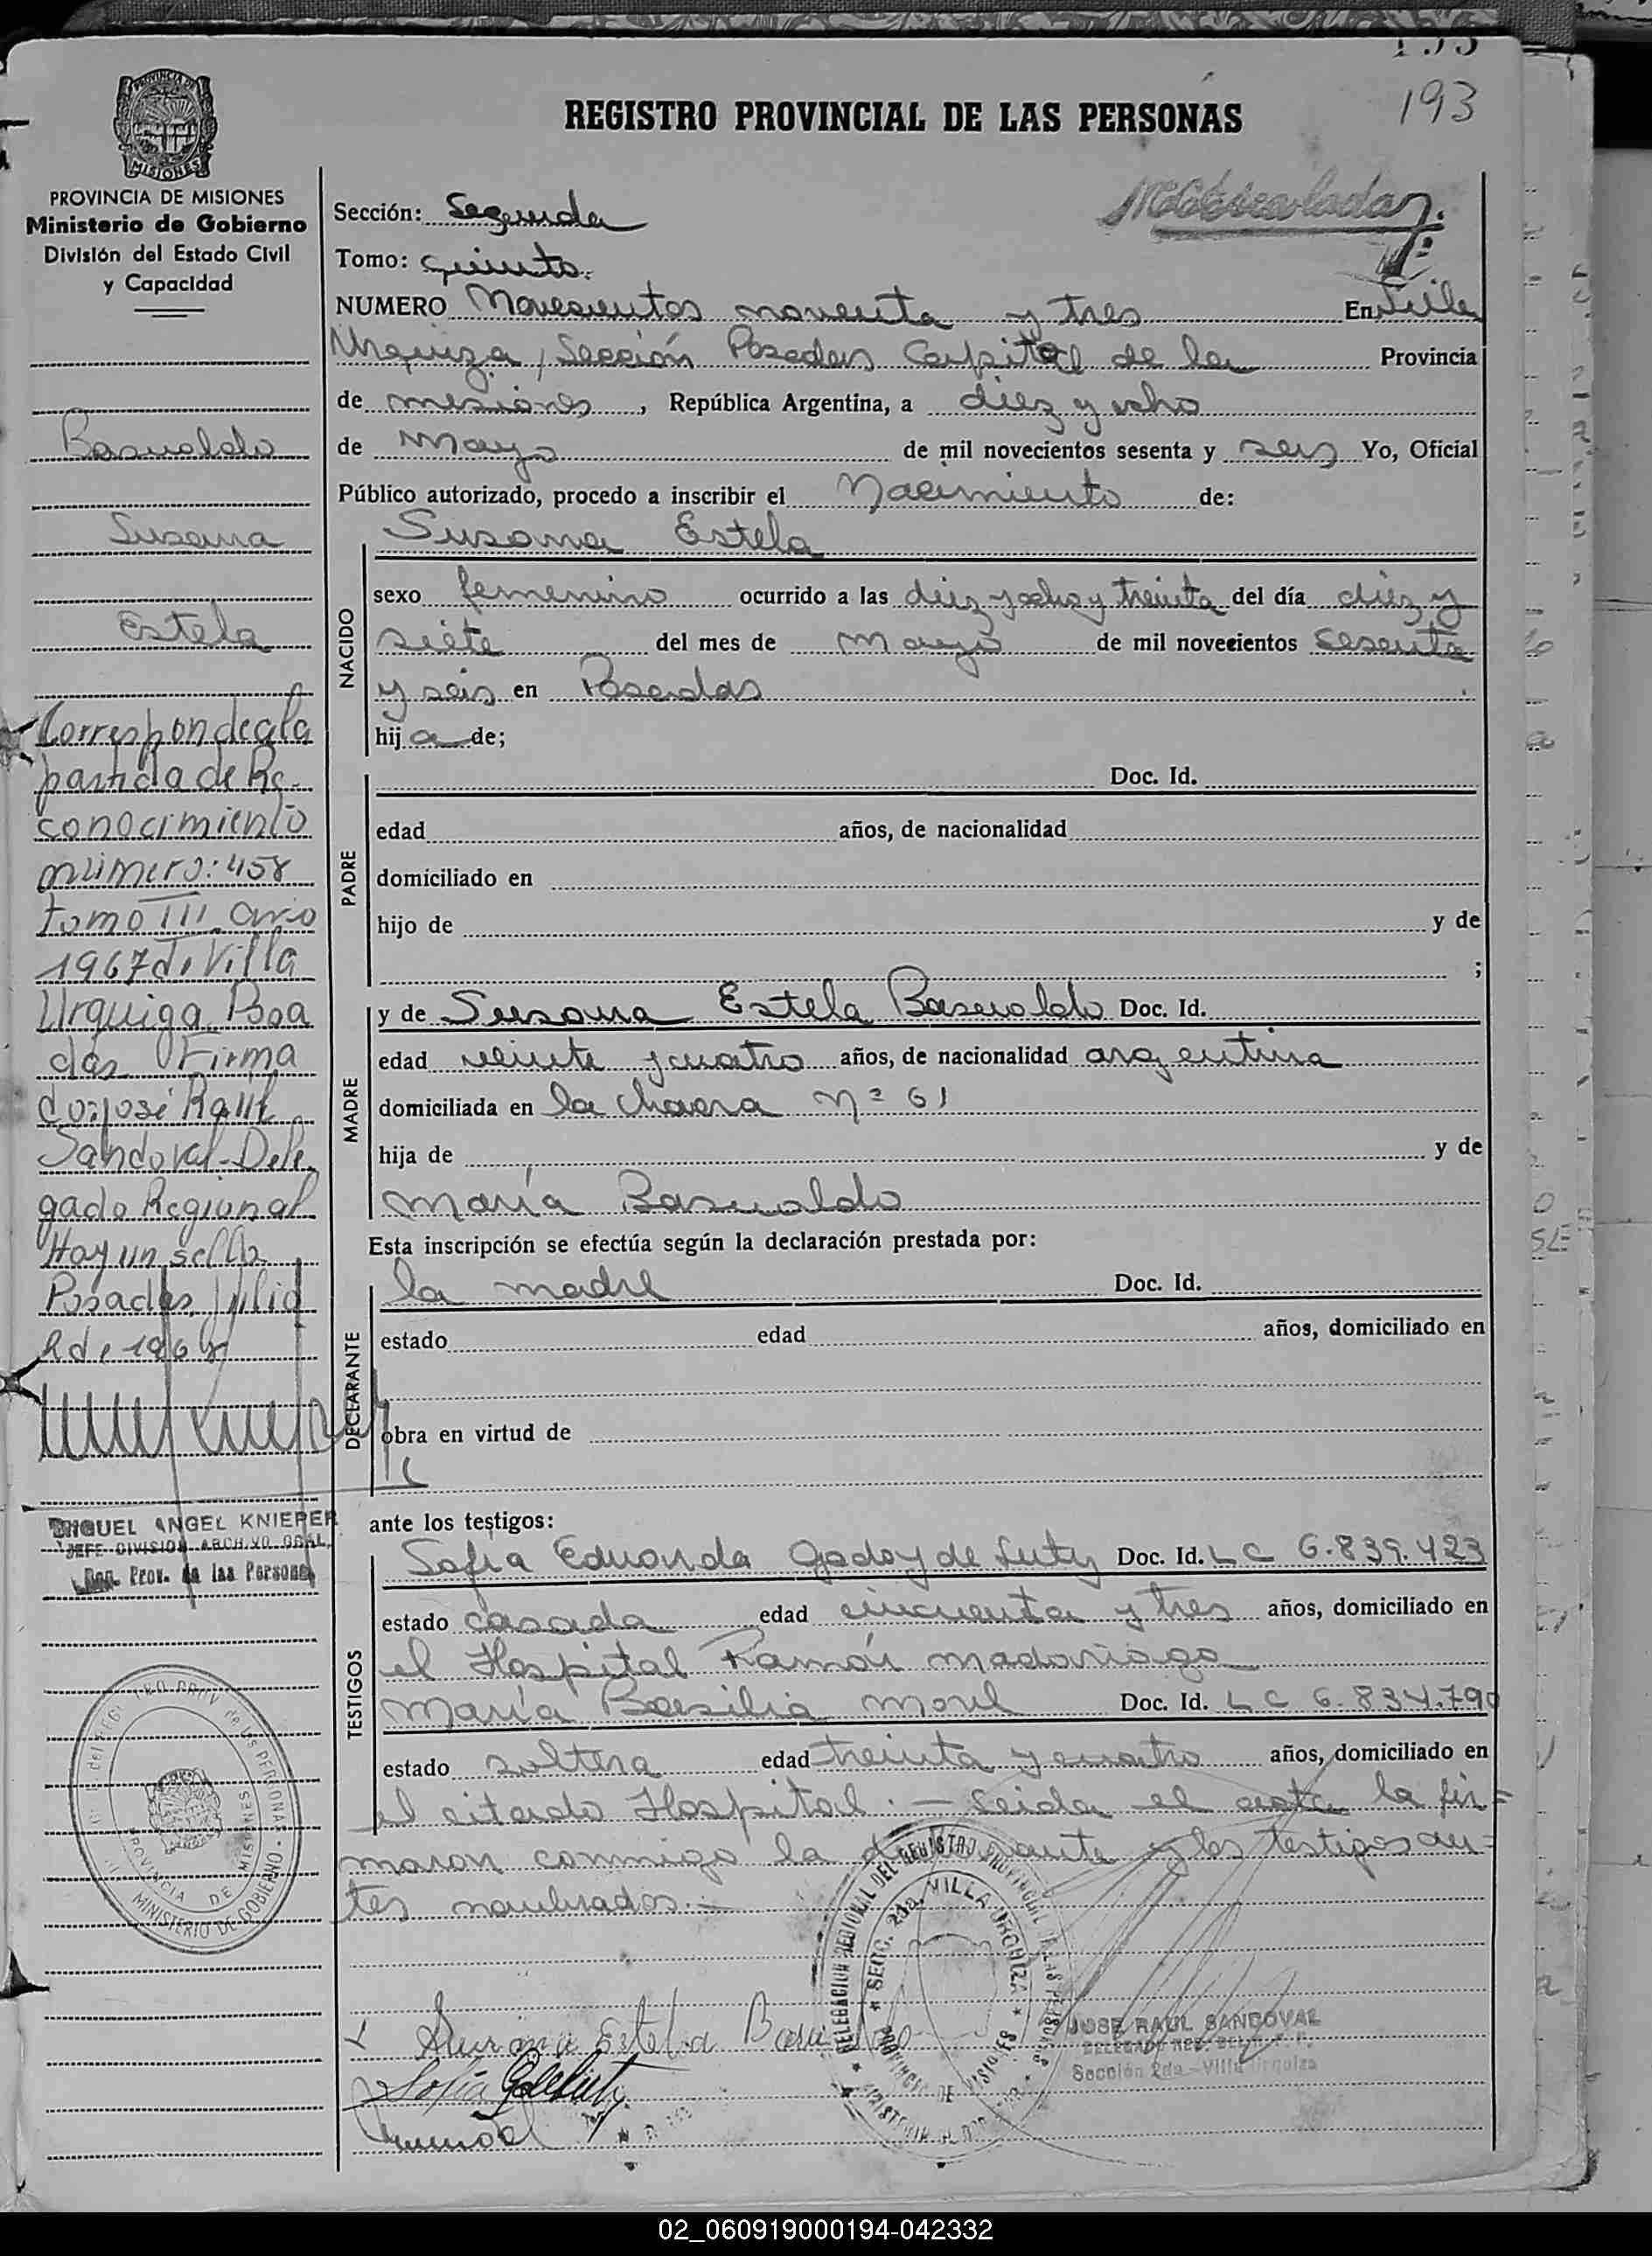 193
REGISTRO PROVINCIAL DE LAS PERSONAS
193
PROVINCIA DE
MISIONES
PROVINCIA DE MISIONES
Ministerio de Gobierno
División del Estado Civil
y Capacidad
Basualdo
Susana
Estela
Corresponde a la
partida de Re-
conocimiento
número: 458
tomo III año
1967 de Villa
Urquiza Posa
das Firma
do: José Raúl
Sandoval - Dele
gado Regional
Hay un sello
Posadas, Julio
MIGUEL ANGEL KNIEPER
JEFE DIVISION ARCHIVO GRAL.
Reg. Prov. de las Personas
PROVINCIA DE MISIONES
MINISTERIO DE GOBIERNO
Sección: Segunda
Tomo: quinto.
NUMERO Novecientos noventa y tres En Villa
Urquiza, Sección Posadas Capital de la Provincia
de misiones, República Argentina, a diez y ocho
de Mayo de mil novecientos sesenta y seis Yo, Oficial
Público autorizado, procedo a inscribir el Nacimiento de:
NACIDO
Susana Estela
sexo femenino ocurrido a las diez y ocho y treinta del día diez y
siete del mes de mayo de mil novecientos sesenta
y seis en Posadas
hij a de;
PADRE
Doc. Id.
edad años, de nacionalidad
domiciliado en
hijo de y de
;
MADRE
y de Susana Estela Basualdo Doc. Id.
edad veinte y cuatro años, de nacionalidad argentina
domiciliada en la chacra Nº 61
hija de y de
María Basualdo
Esta inscripción se efectúa según la declaración prestada por:
DECLARANTE
la madre Doc. Id.
estado edad años, domiciliado en
obra en virtud de
ante los testigos:
TESTIGOS
Sofia Eduarda Godoy de Doc. Id. L C 6.839.423
estado casada edad cincuenta y tres años, domiciliado en
el Hospital Ramón madariaga
María Basilia Doc. Id. L C 6.834.790
estado soltera edad treinta y cuatro años, domiciliado en
el citado Hospital. - Leida el acta la fir=
maron conmigo la declarante y los testigos an=
tes nombrados. -
DELEGACION REGIONAL DEL REGISTRO PROVINCIAL DE LAS PERSONAS
SECC. 2da. VILLA URQUIZA
PROVINCIA DE MISIONES
Susana Estela Basualdo
Sofia
JOSE RAUL SANDOVAL
DELEGADO REG.
Sección 2da.-Villa Urquiza
02_060919000194-042332